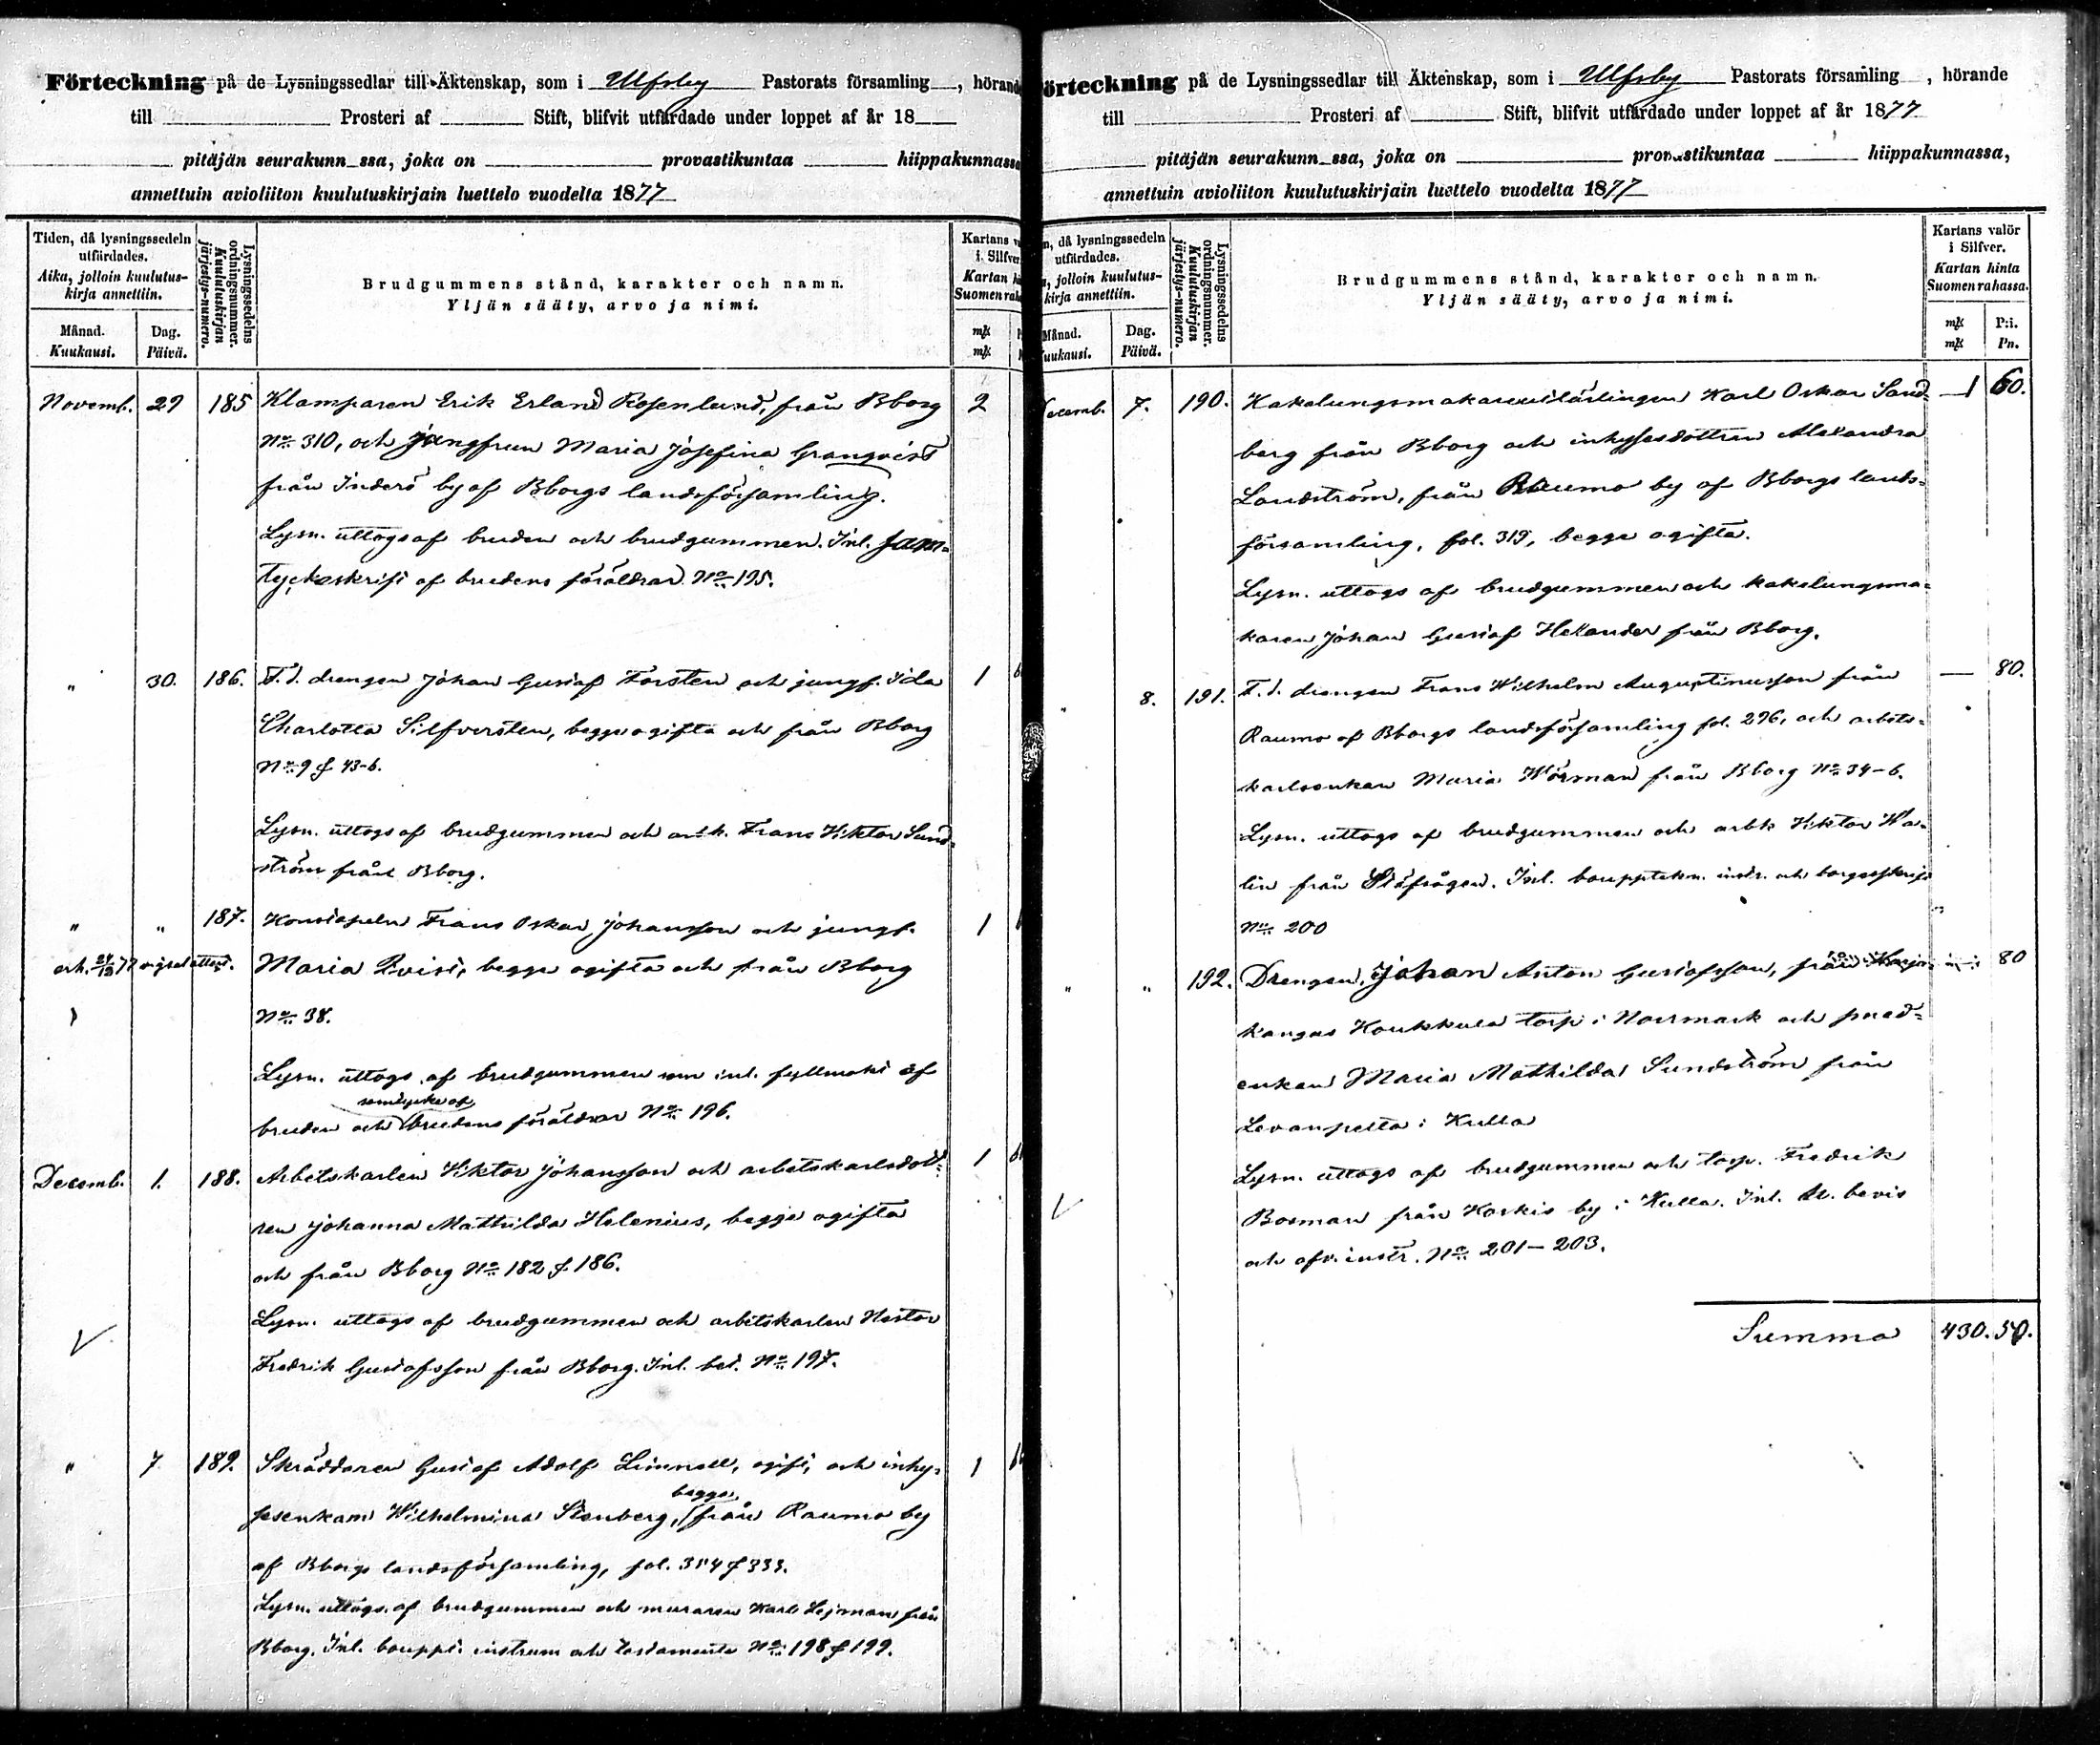 Förteckning på de Lysningssedlar till Äktenskap, som i Ulfsby Pastorats församling , hörande
till Prosteri af Stift, blifvit utfärdade under loppet af år 18
pitäjän seurakunn ssa, joka on provastikuntaa hiippakunnassa
annettuin avioliiton kuulutuskirjain luettelo vuodelta 1877
Tiden, då lysningssedeln utfärdades.
Aika, jolloin kuulutus-kirja annettiin.
Månad.
Kuukausi.
Dag.
Päivä.
Lysningssedelns ordningsnummer.
Kuulutuskirjan järjestys-numero.
Brudgummens stånd, karakter och namn.
Yljän sääty, arvo ja nimi.
Kartans
i Silfver
Kartan
Suomen
mk
mk
Novemb. 29 185 Klamparen Erik Erland Rosenlund, från Bborg 2
No 310, och jungfrun Maria Josefina Granqvist
från Inderö by af Bborgs landsförsamling.
Lysn. uttogs af bruden och brudgummen. Inl. sam-
tyckeskrift af brudens föräldrar No 195.
" 30. 186. F.d. drengen Johan Gustaf Forsten och jungf. Ida 1
Charlotta Silfversten, begge ogifta och från Bborg
No 9 & 43-6.
Lysn. uttogs af brudgummen och arb.k. Frans Viktor Sund-
ström från Bborg.
" " 187. Konstapeln Frans Oskar Johansson och jungf. 1
Maria Qvist, begge ogifta och från Bborg
No 38.
Lysn. uttogs af brudgummen som inl. fullmakt af
samtycke af
bruden och brudens föräldrar No 196.
Decemb. 1. 188. Arbetskarlen Viktor Johansson och arbetskarlsdott- 1
ren Johanna Mathilda Helenius, begge ogifta
och från Bborg No 182 & 186.
Lysn. uttogs af brudgummen och arbetskarlen Nestor
Fredrik Gustafsson från Bborg. Inl. bet. No 197.
" 7 189. Skräddaren Gustaf Adolf Linnell, ogift, och inhy- 1
begge
sesenkan Wilhelmina Stenberg, från Raumo by
af Bborgs landsförsamling, fol. 314 & 333.
Lysn. uttogs af brudgummen och muraren Karl Lejman från
Bborg. Inl. bouppt. instrum och testamente No 198 & 199.
örteckning på de Lysningssedlar till Äktenskap, som i Ulfsby Pastorats församling , hörande
till Prosteri af Stift, blifvit utfärdade under loppet af år 1877
pitäjän seurakunn ssa, joka on provastikuntaa hiippakunnassa,
annettuin avioliiton kuulutuskirjain luettelo vuodelta 1877
n, då lysningssedeln utfärdades.
jolloin kuulutus-kirja annettiin.
Månad.
uukausi.
Dag.
Päivä.
Lysningssedelns ordningsnummer.
Kuulutuskirjan järjestys-numero.
Brudgummens stånd, karakter och namn.
Yljän sääty, arvo ja nimi.
Kartans valör
i Silfver.
Kartan hinta
Suomen rahassa.
mk P:i.
mk Pn.
Decemb. 7. 190. Kakelungsmakarelärlingen Karl Oskar Sand- 1 60.
berg från Bborg och inhysesdottren Alexandra
Landström, från Raumo by af Bborgs lands-
församling, fol. 319, begge ogifta.
Lysn. uttogs af brudgummen och kakelungsma-
karen Johan Gustaf Helander från Bborg.
" 8. 191. F.d. drengen Frans Wilhelm Augustinusson från — 80.
Raumo af Bborgs landsförsamling fol. 276, och arbets-
karlsenkan Maria Wörman från Bborg No 34-6.
Lysn. uttogs af brudgummen och arbk Viktor Wa-
lin från. Inl. bouppteckn. instr. och borgesskrift
No 200
" " 192. Drengen Johan Anton Gustafsson, från Harju- 80
kangas Koukkula torp i Norrmark och
enkan Maria Mathilda Sundström från
Levanpelto i Kulla
Lysn. uttogs af brudgummen och torp. Fredrik
Bosman från Koskis by i Kulla. Inl. bevis
och afv. instr. No 201-203.
Summa 430.50.